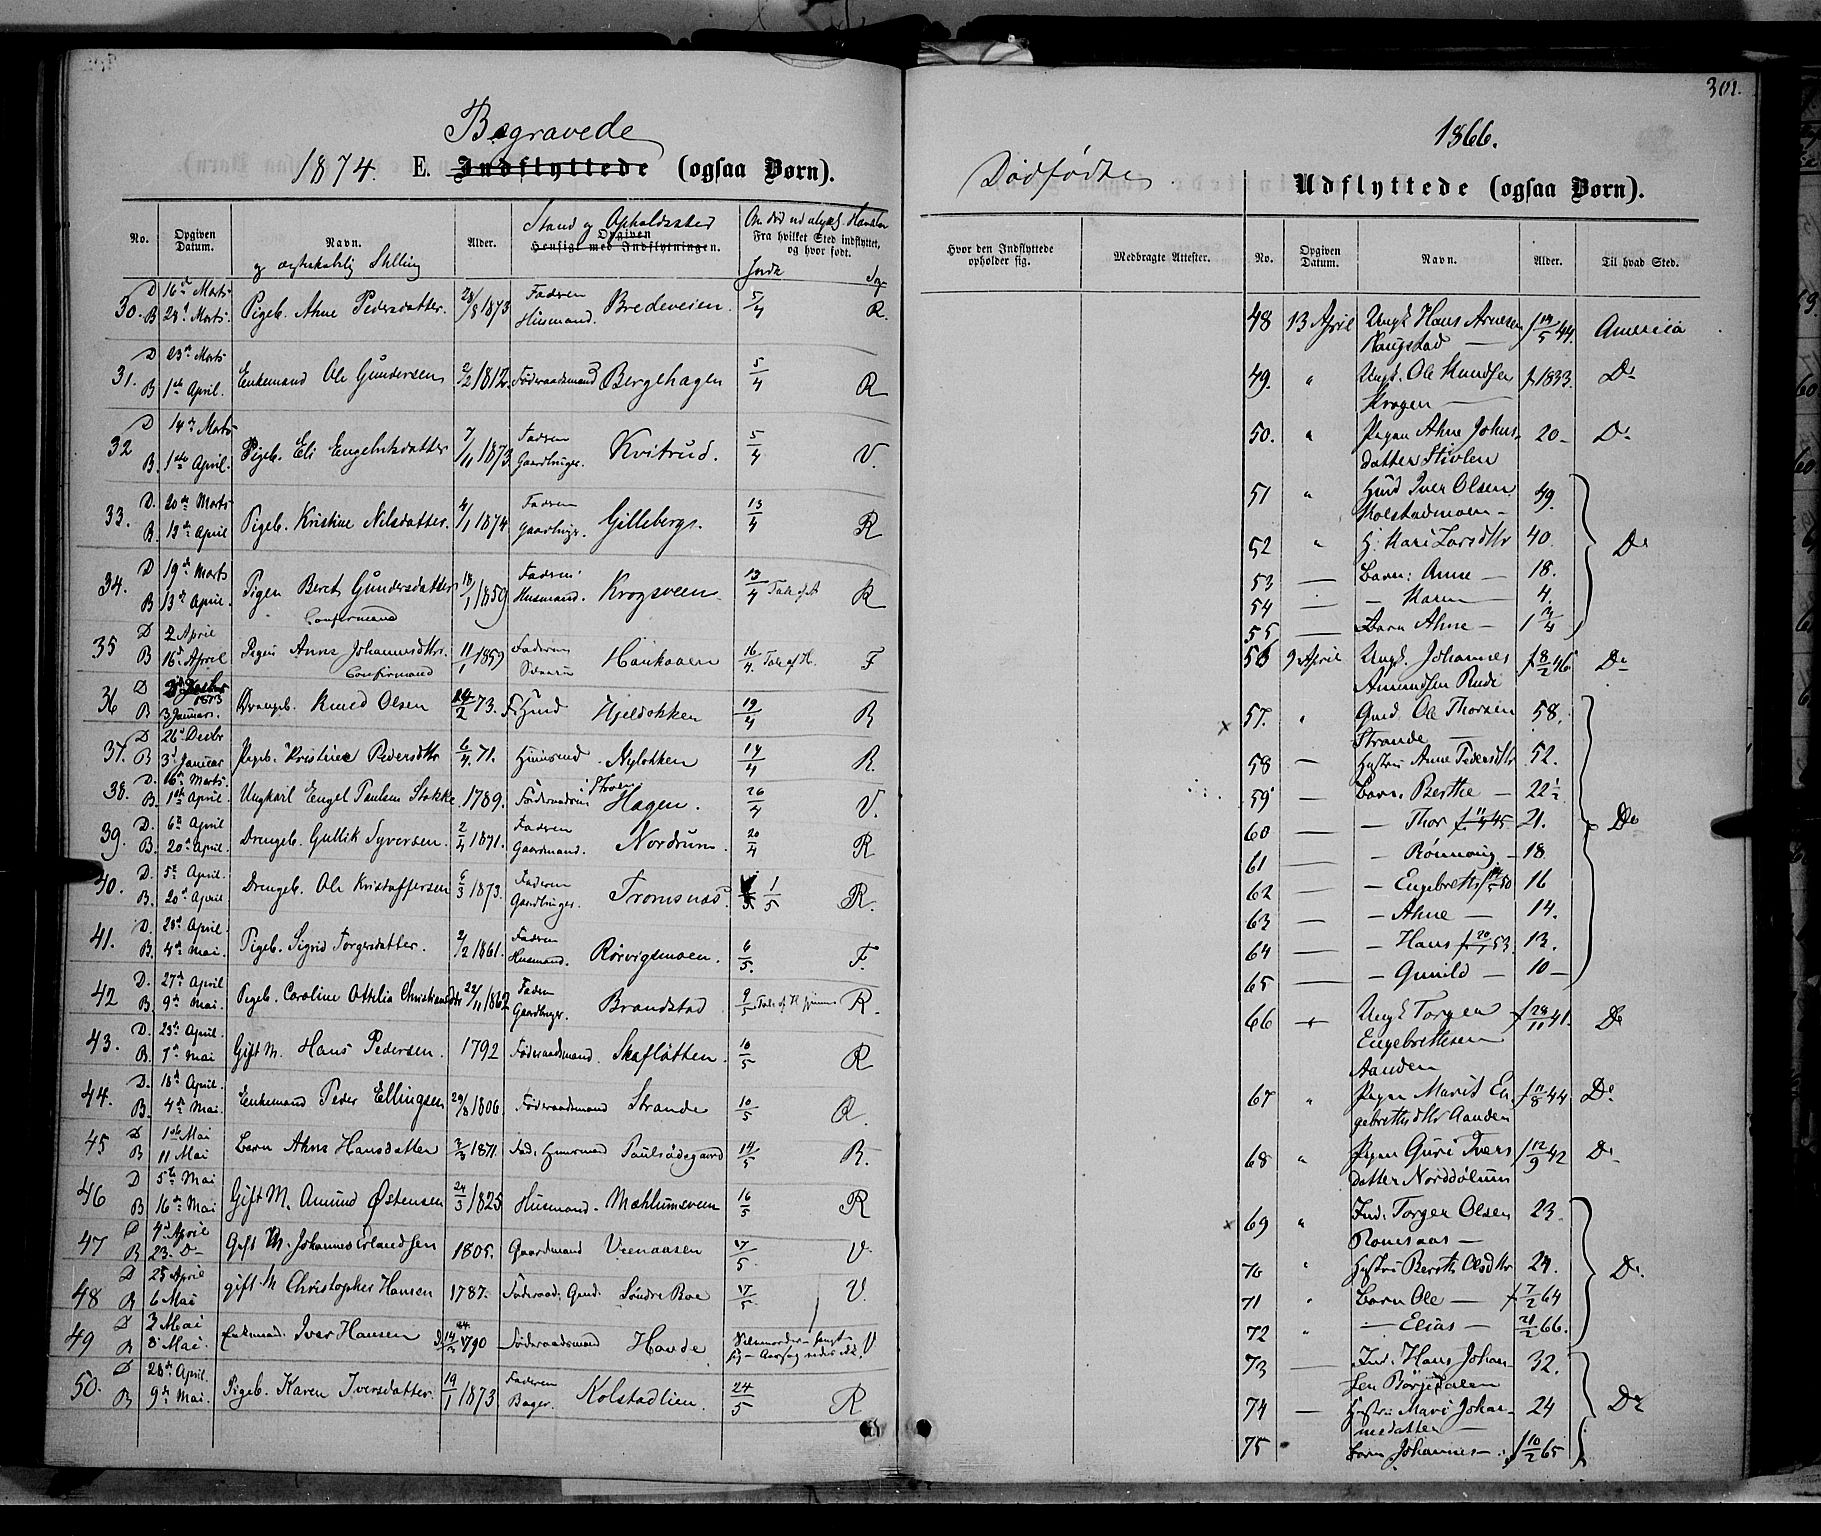 301.
Begravede
1874. E. Indflyttede (ogsaa Børn).
No.
Opgiven Datum.
Navn.
og ægteskabelig Stilling
Alder.
Stand og Opholdssted
Opgiven
Hensigt med Indflytningen.
Fra hvilket Sted indflyttet, og hvor født.
30. D 16de Marts B 28d Marts. Pigeb. Ahne Pedersdatter. 28/8 1873 Faderen Husmand. Bredeveien. 5/4 R.
31. D 23de Marts B 1ste April. Enkemand Ole Gundersen 2/2 1812. Føderaadsmand Bergehagen 5/4 R
32 D 14de Marts B. 1ste April. Pigeb. Eli Engebretsdatter 7/11 1873. Faderen Gaardbruger. Kvitrud. 5/4 V.
33. D. 20de Marts B. 13de April Pigeb. Kristine Nilsdatter. 4/1 1874 Faderen Gaardbruger. Gillebergs. 13/4 R
34. D 19de Marts B 13de April. Pigen Beret Gundersdatter Confirmand 18/1 1859 Faderen Husmand. Krogsveen 13/4 Tale af R
35 D 2 April B 16d April Pigen Anne Johannesdtr. Confirmand 11/1 1859 Faderen Haukaaen 16/4. Tale af H. F
36 D 1873 B 3 Januar. Drengeb. Knud Olsen 24/2 73. F. Hjeldokken 19/4 R
37. D 26d Decbr B 3d Januar Pigeb. Kristine Pedersdtr 6/4. 71. Nylokken 14/4 R.
38. D. 16de Marts. B. 1ste April. Ungkarl Engel Paulsen Stokke 1789. Hagen. 26/4 V.
39. D. 6te April B. 20de April. Drengeb. Gullik Syversen. 2/4 1871. Faderen Gaardmand. Nordrum 20/4 R
40. D. 5te April. B. 20de April Drengeb. Ole Kristoffersen 6/3 1873. Faderen Gaardbruger. Tromsnæs. 1/5 R.
41. D. 20d April. B. 4de Mai. Pigeb. Sigrid Torgersdatter. 2/2 1861. Faderen Husmand. Rørvigsmoen. 6/5. F.
42 D. 27de April B. 9de Mai. Pigeb. Caroline Ottilia Christiansdtr 22/11 1862 Faderen Gaardbruger. Brandstad 9/5 Tale af H R.
43. D. 23de April. B. 7de Mai Gift M. Hans Pedersen. 1792 Føderaadsmand. Skafløtten. 10/5 R
44. D. 18de April. B. 4de Mai. Enkemand Peder Ellingsen 29/8 1806. Føderaadsmand Strande 10/5 R.
45 D 1ste Mai B 11 Mai Barn Ahne Hansdatter 3/3 1871. Fad. Husmand Paulsødegaard 14/5 R.
46 D 5te Mai B 16de Mai Gift M. Amund Østensen 24/3 1825 Husmand. Mæhlumsveen 16/5 R
47 D 4de April B 23. D- Gift M. Johannes Erlandsen 1805. Gaardmand Veenaasen 17/5. V.
48 D 25 April B 6 Mai gift M Christopher Hansen 1787. Føderaad. Gmd. Søndre Roe 17/5. V.
49 D 3 Mai B 8 Mai. Enkemd. Iver Hansen 14/3 1790 Føderaadsmand Hovde Selvmorder V
50. D 28de April. B 9de Mai. Pigeb. Karen Iversdatter. 19/1 1873 Faderen Bager. Kolstadlien. 24/5 R.
1866.
Dødfødte.
Udflyttede (ogsaa Børn).
Hvor den Indflyttede opholder sig.
Medbragte Attester.
No.
Opgiven Datum.
Navn.
Alder.
Til hvad Sted.
48 13 April Ungk Hans Arnesen Haugstad — f 14/5 44. America
49. " Ungk. Ole Knudsen Krogen — f. 1833. Do
50. " Pigen Ahne Johnsdatter Stivlen 20 - Do
51 " Husmd Iver Olsen Kolstadmoen — 49.
52 " H. Kari Larsdtr 40. Do
53 — Barn: Anne — 18.
54 — — Karen — 4.
55 — Barn Ahne — 1 3/4
56 9 April Ungk. Johannes Amundsen Rude f 8/2 46 Do
57. " Gmd. Ole Thorsen Strande — 58.
58 — Hustru Anne Pedersdtr 52.
59 — Barn. Berthe — 22 1/2
60 — — Thor 21. Do
61 — — Rønnaug — 18
62 — — Engebret 16
63 — — Ahne — 14.
64 — — Hans 13.
65 — — Gunild — 10 —
66 Ungk Torger Engebretsen Aanden f 28/11 41. Do
67 " Pigen Marit Engebretsdtr Aanden f 11/8 44 Do
68 " Pigen Guri Iversdatter Norddølum f 12/9 42 Do
69 " Ind. Torger Olsen Romsaas — 23.
70 " Hustru Berthe Olsdtr 24. Do
71 " Barn Ole — f 7/2 64
72 " — Elias — 21/2 66.
73 — Ind. Hans Johansen Børjedalen 32.
74 — Hustru Mari Johannesdatter — 24 Do
75 " Barn Johannes — f 10/2 65